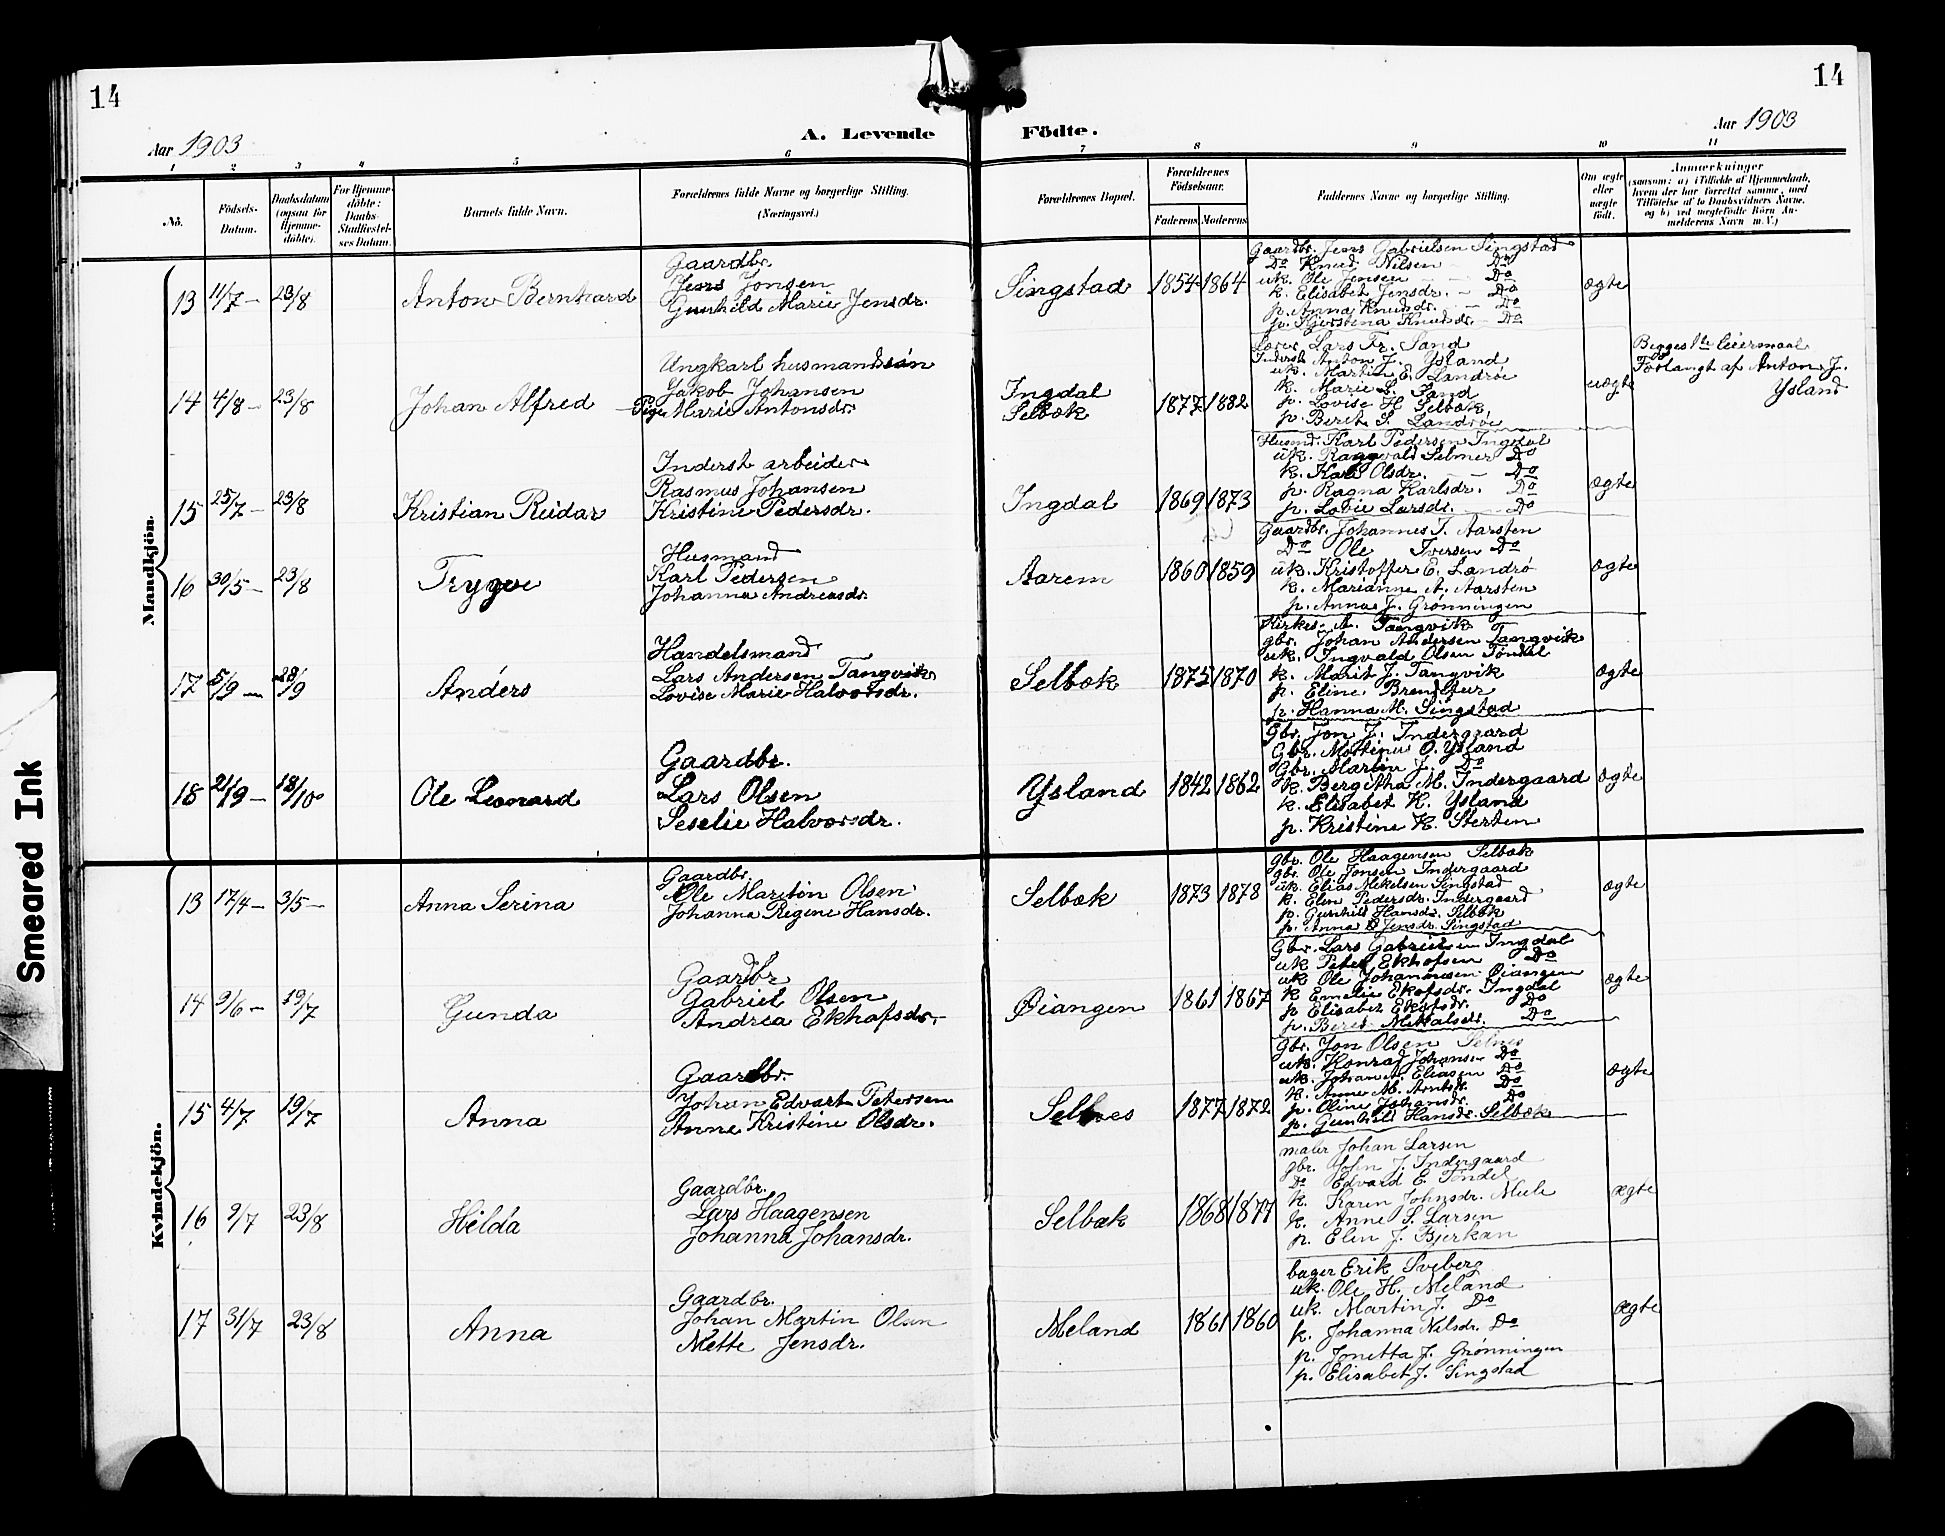 14
14
Aar 1903
A. Levende Födte.
Aar 1903
1 2 3 4 5 6 7 8 9 10 11
No.
Födsels-Datum.
Daabsdatum (ogsaa for Hjemme-döbte).
For Hjemme-döbte: Daabs-Stadfæstel-ses Datum.
Barnets fulde Navn.
Forældrenes fulde Navne og borgerlige Stilling. (Næringsvei.)
Forældrenes Bopæl.
Forældrenes Födselsaar.
Faderens Moderens
Faddernes Navne og borgerlige Stilling.
Om ægte eller uægte födt.
Anmærkninger
(saasom: a) i Tilfælde af Hjemmedaab, hvem der har forrettet samme, med Tilföielse af to Daabsvidners Navne, og b) ved uægtefödte Börn An-melderens Navn m. V.)
Mandkjön.
13 11/7 – 23/8 Anton Bernhard
Gaardbr.
Jens Jonsen
Gunhild Marie Jensdr.
Singstad 1854 1864
Gaardbr. Jens Gabrielsen Singstad
Do Knud Nilsen – Do
uk. Ole Jensen – Do
k. Elisabet Jensdr. – Do
p. Anna Knudsdr. – Do
p. Kjerstina Knudsdr. – Do
ægte
14 4/8 – 23/8 Johan Alfred
Ungkarl husmandssön
Jakob Johansen
Pige Marie Antonsdr.
Ingdal
Selbæk
1877 1882
Lærer Lars Fr. Sand
Inderst Anton J. Ysland
uk. Martin E. Landrøe
k. Marie L. Sand
p. Lovise H. Selbæk
p. Berit S. Landrøe
uægte
Begges 1te leiermaal
Forlangt af Anton J.
Ysland
15 25/7 – 23/8 Kristian Reidar
Inderst arbeider
Rasmus Johansen
Kristine Pedersdr.
Ingdal 1869 1873
Husmd. Karl Pedersen Ingdal
uk. Ragnvald Selmer Do
k. Karl Olsdr. – Do
p. Ragna Karlsdr. Do
p. Lovie Larsdr. – Do
ægte
16 30/5 – 23/8 Trygve
Husmand
Karl Pedersen
Johanna Andreasdr.
Aarem 1860 1859
Gaardbr. Johannes I. Aarsten
Do Ole Iversen Do
uk. Kristoffer E. Landrø
k. Marianne A. Aarsten
p. Anna J. Grønningen
ægte
17 5/9 – 28/9 Anders
Handelsmand
Lars Andersen Tangvik
Lovise Marie Halvorsdr.
Selbæk 1875 1870
Kirkes. A. Tangvik
gbr. Johan Andersen Tangvik
uk. Ingvald Olsen Tøndel
k. Marit J. Tangvik
p. Eline
p. Hanna M. Singstad
ægte
18 21/9 – 18/10 Ole Leonard
Gaardbr.
Lars Olsen
Seselie Halvorsdr.
Ysland 1842 1862
Gbr. Jon J. Indergaard
Gbr. Mortinus O. Ysland
Gbr. Martin J. Do
k. Bergitha M. Indergaard
k. Elisabet K. Ysland
p. Kristine K. Sterten
ægte
Kvindekjön.
13 17/4 – 3/5 – Anna Serina
Gaardbr.
Ole Maritin Olsen
Johanna Regine Hansdr.
Selbæk 1873 1878
gbr. Ole Haagensen Selbæk
gbr. Ole Jonsen Indergaard
uk. Elias Mekelsen Singstad
k. Elen Pedersdr. Indergaard
p. Gunhild Hansdr. Selbæk
p. Anna Jensdr. Singstad
ægte
14 9/6 – 19/7 Gunda
Gaardbr
Gabriel Olsen
Andrea Ekhofsdr.
Øiangen 1861 1867
Gbr. Lars Gabrielsen Ingdal
uk Peter Ekhofsen Do
uk Ole Johannesen Øiangen
k Emelie Ekofsdr. Ingdal
p Elisabet Ekofsdr. Do
p. Beret Mikalsdr. Do
ægte
15 4/7 19/7 Anna
Gaardbr.
Johan Edvart Petersen
Anne Kristine Olsdr.
Selnes 1877 1872
gbr. Jon Olsen Selnes
uk. Konrad Johansen Do
uk. Johan A. Eliasen Do
k. Anne M. Arntsdr. Do
p. Oline Johansdr. Do
p. Gunhild Hansdr. Selbæk
ægte
16 9/7 23/8 Hilda
Gaardbr.
Lars Haagensen
Johanna Johansdr.
Selbæk 1868 1877
maler Johan Larsen
gbr. John J. Indergaard
Do Edvard E. Tøndel
k. Karen Johnsdr. Mule
k. Anne S. Larsen
p. Elen J. Bjerkan
ægte
17 31/7 23/8 Anna
Gaardbr.
Johan Martin Olsen
Mette Jensdr.
Meland 1861 1860
bager Erik Sveberg
uk. Ole H. Meland
uk. Martin J. Do
k. Johanna Nilsdr. Do
p. Jonetta J. Grønningen
p. Elisabet J. Singstad
ægte
Smeared Ink